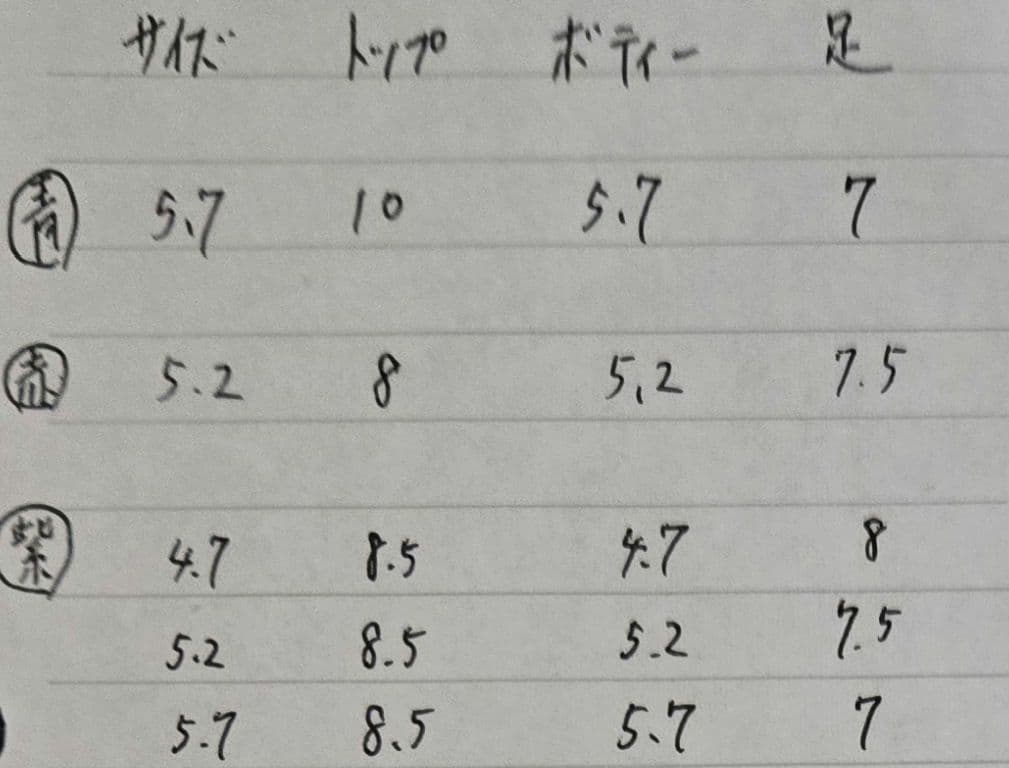 サイズ トップ ボディー 足
青 5.7 10 5.7 7
赤 5.2 8 5.2 7.5
紫 4.7 8.5 4.7 8
5.2 8.5 5.2 7.5
5.7 8.5 5.7 7